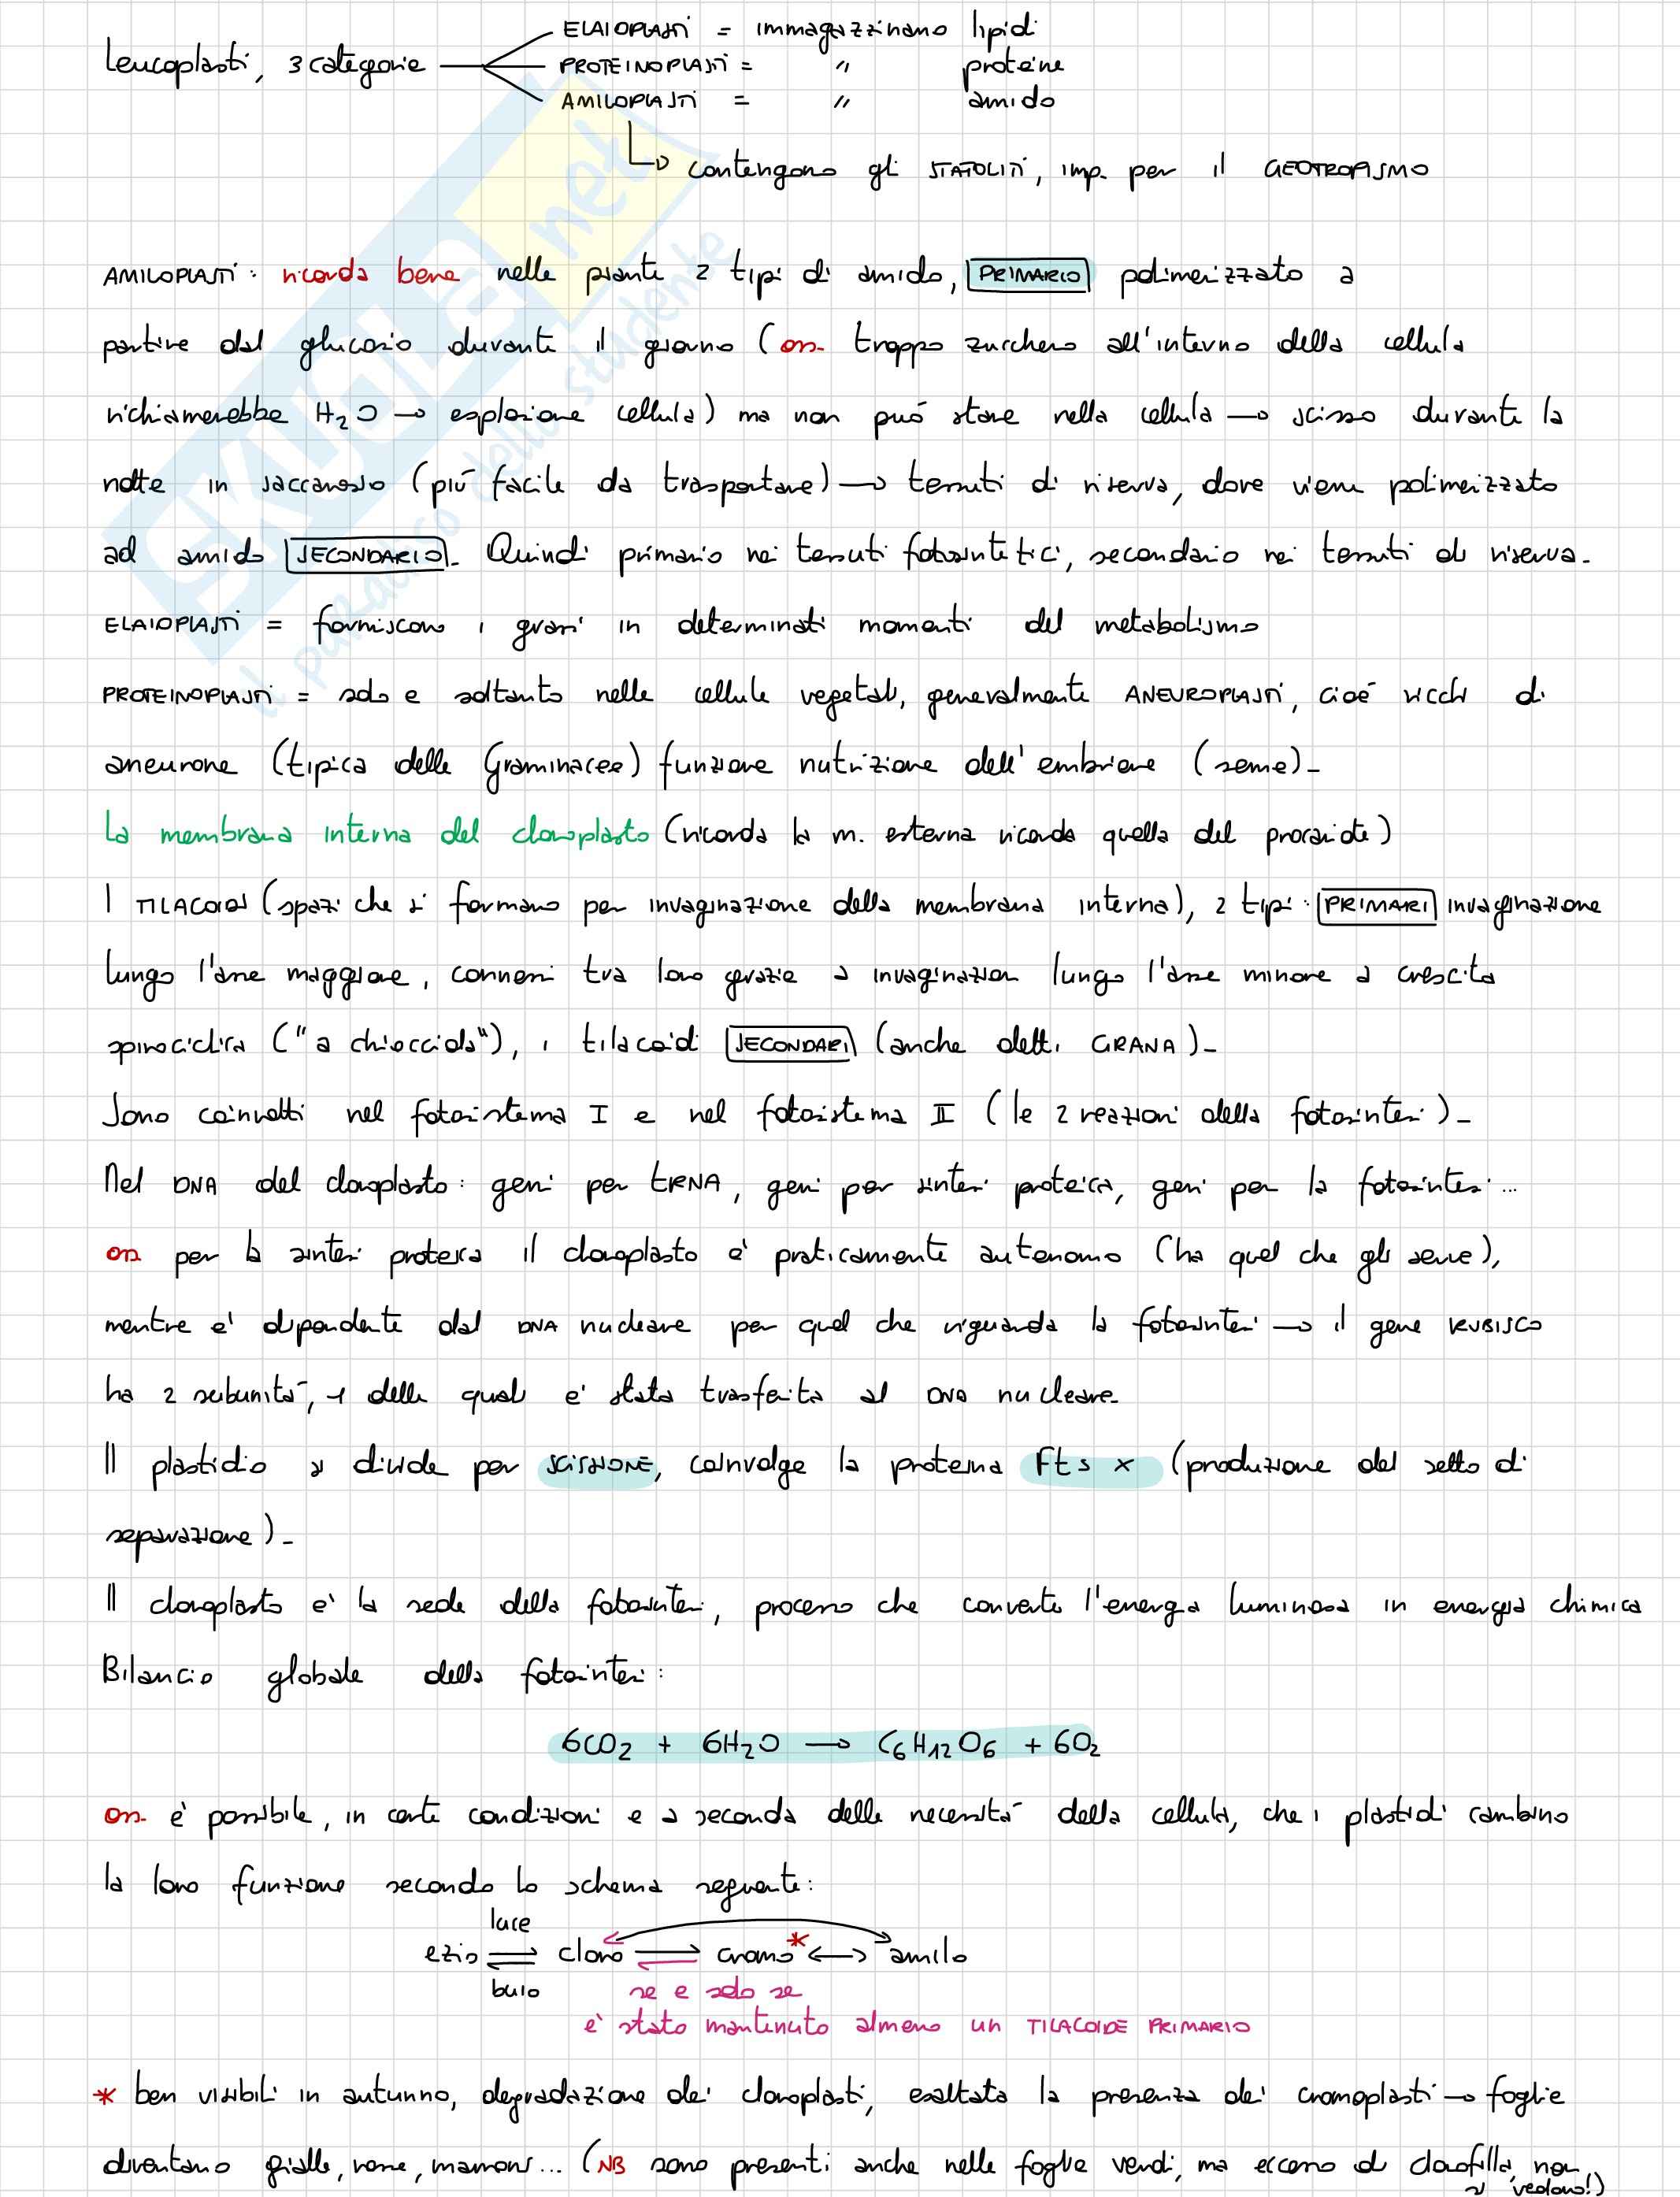 Leucoplasti, 3 categorie
ELAIOPLASTI = immagazzinano lipidi
PROTEINOPLASTI = " proteine
AMILOPLASTI = " amido
contengono gli STATOLITI, imp. per il GEOTROPISMO
AMILOPLASTI: ricorda bene nelle piante 2 tipi di amido, PRIMARIO polimerizzato a
partire dal glucosio durante il giorno (oss. troppo zucchero all'interno della cellula
richiamerebbe H2O → esplosione cellula) ma non può stare nella cellula → scisso durante la
notte in saccarosio (più facile da trasportare) → tessuti di riserva, dove viene polimerizzato
ad amido SECONDARIO. Quindi primario nei tessuti fotosintetici, secondario nei tessuti di riserva.
ELAIOPLASTI = forniscono i grassi in determinati momenti del metabolismo
PROTEINOPLASTI = solo e soltanto nelle cellule vegetali, generalmente ANEUROPLASTI, cioè ricchi di
aneurone (tipica delle Graminacee) funzione nutrizione dell'embrione (seme).
La membrana interna del cloroplasto (ricorda la m. esterna ricorda quella del procariote)
I TILACOIDI (spazi che si formano per invaginazione della membrana interna), 2 tipi: PRIMARI invaginazione
lungo l'asse maggiore, connessi tra loro grazie a invaginazioni lungo l'asse minore a crescita
spirociclica ("a chiocciola"), i tilacoidi SECONDARI (anche detti GRANA).
Sono coinvolti nel fotosistema I e nel fotosistema II (le 2 reazioni della fotosintesi).
Nel DNA del cloroplasto: geni per tRNA, geni per sintesi proteica, geni per la fotosintesi...
oss per la sintesi proteica il cloroplasto è praticamente autonomo (ha quel che gli serve),
mentre è dipendente dal DNA nucleare per quel che riguarda la fotosintesi → il gene RUBISCO
ha 2 subunità, 1 delle quali è stata trasferita al DNA nucleare.
Il plastidio si divide per SCISSIONE, coinvolge la proteina Fts x (produzione del setto di
separazione).
Il cloroplasto è la sede della fotosintesi, processo che converte l'energia luminosa in energia chimica
Bilancio globale della fotosintesi:
6CO2 + 6H2O → C6H12O6 + 6O2
oss. è possibile, in certe condizioni e a seconda delle necessità della cellula, che i plastidi cambino
la loro funzione secondo lo schema seguente:
luce
ezio ⇌ cloro ⇌ cromo* ↔ amilo
buio se e solo se
è stato mantenuto almeno un TILACOIDE PRIMARIO
* ben visibili in autunno, degradazione dei cloroplasti, esaltata la presenza dei cromoplasti → foglie
diventano gialle, rosse, marroni... (NB sono presenti anche nelle foglie verdi, ma eccesso di clorofilla, non
si vedono!)
SKUOLA.net
il paradiso dello studente